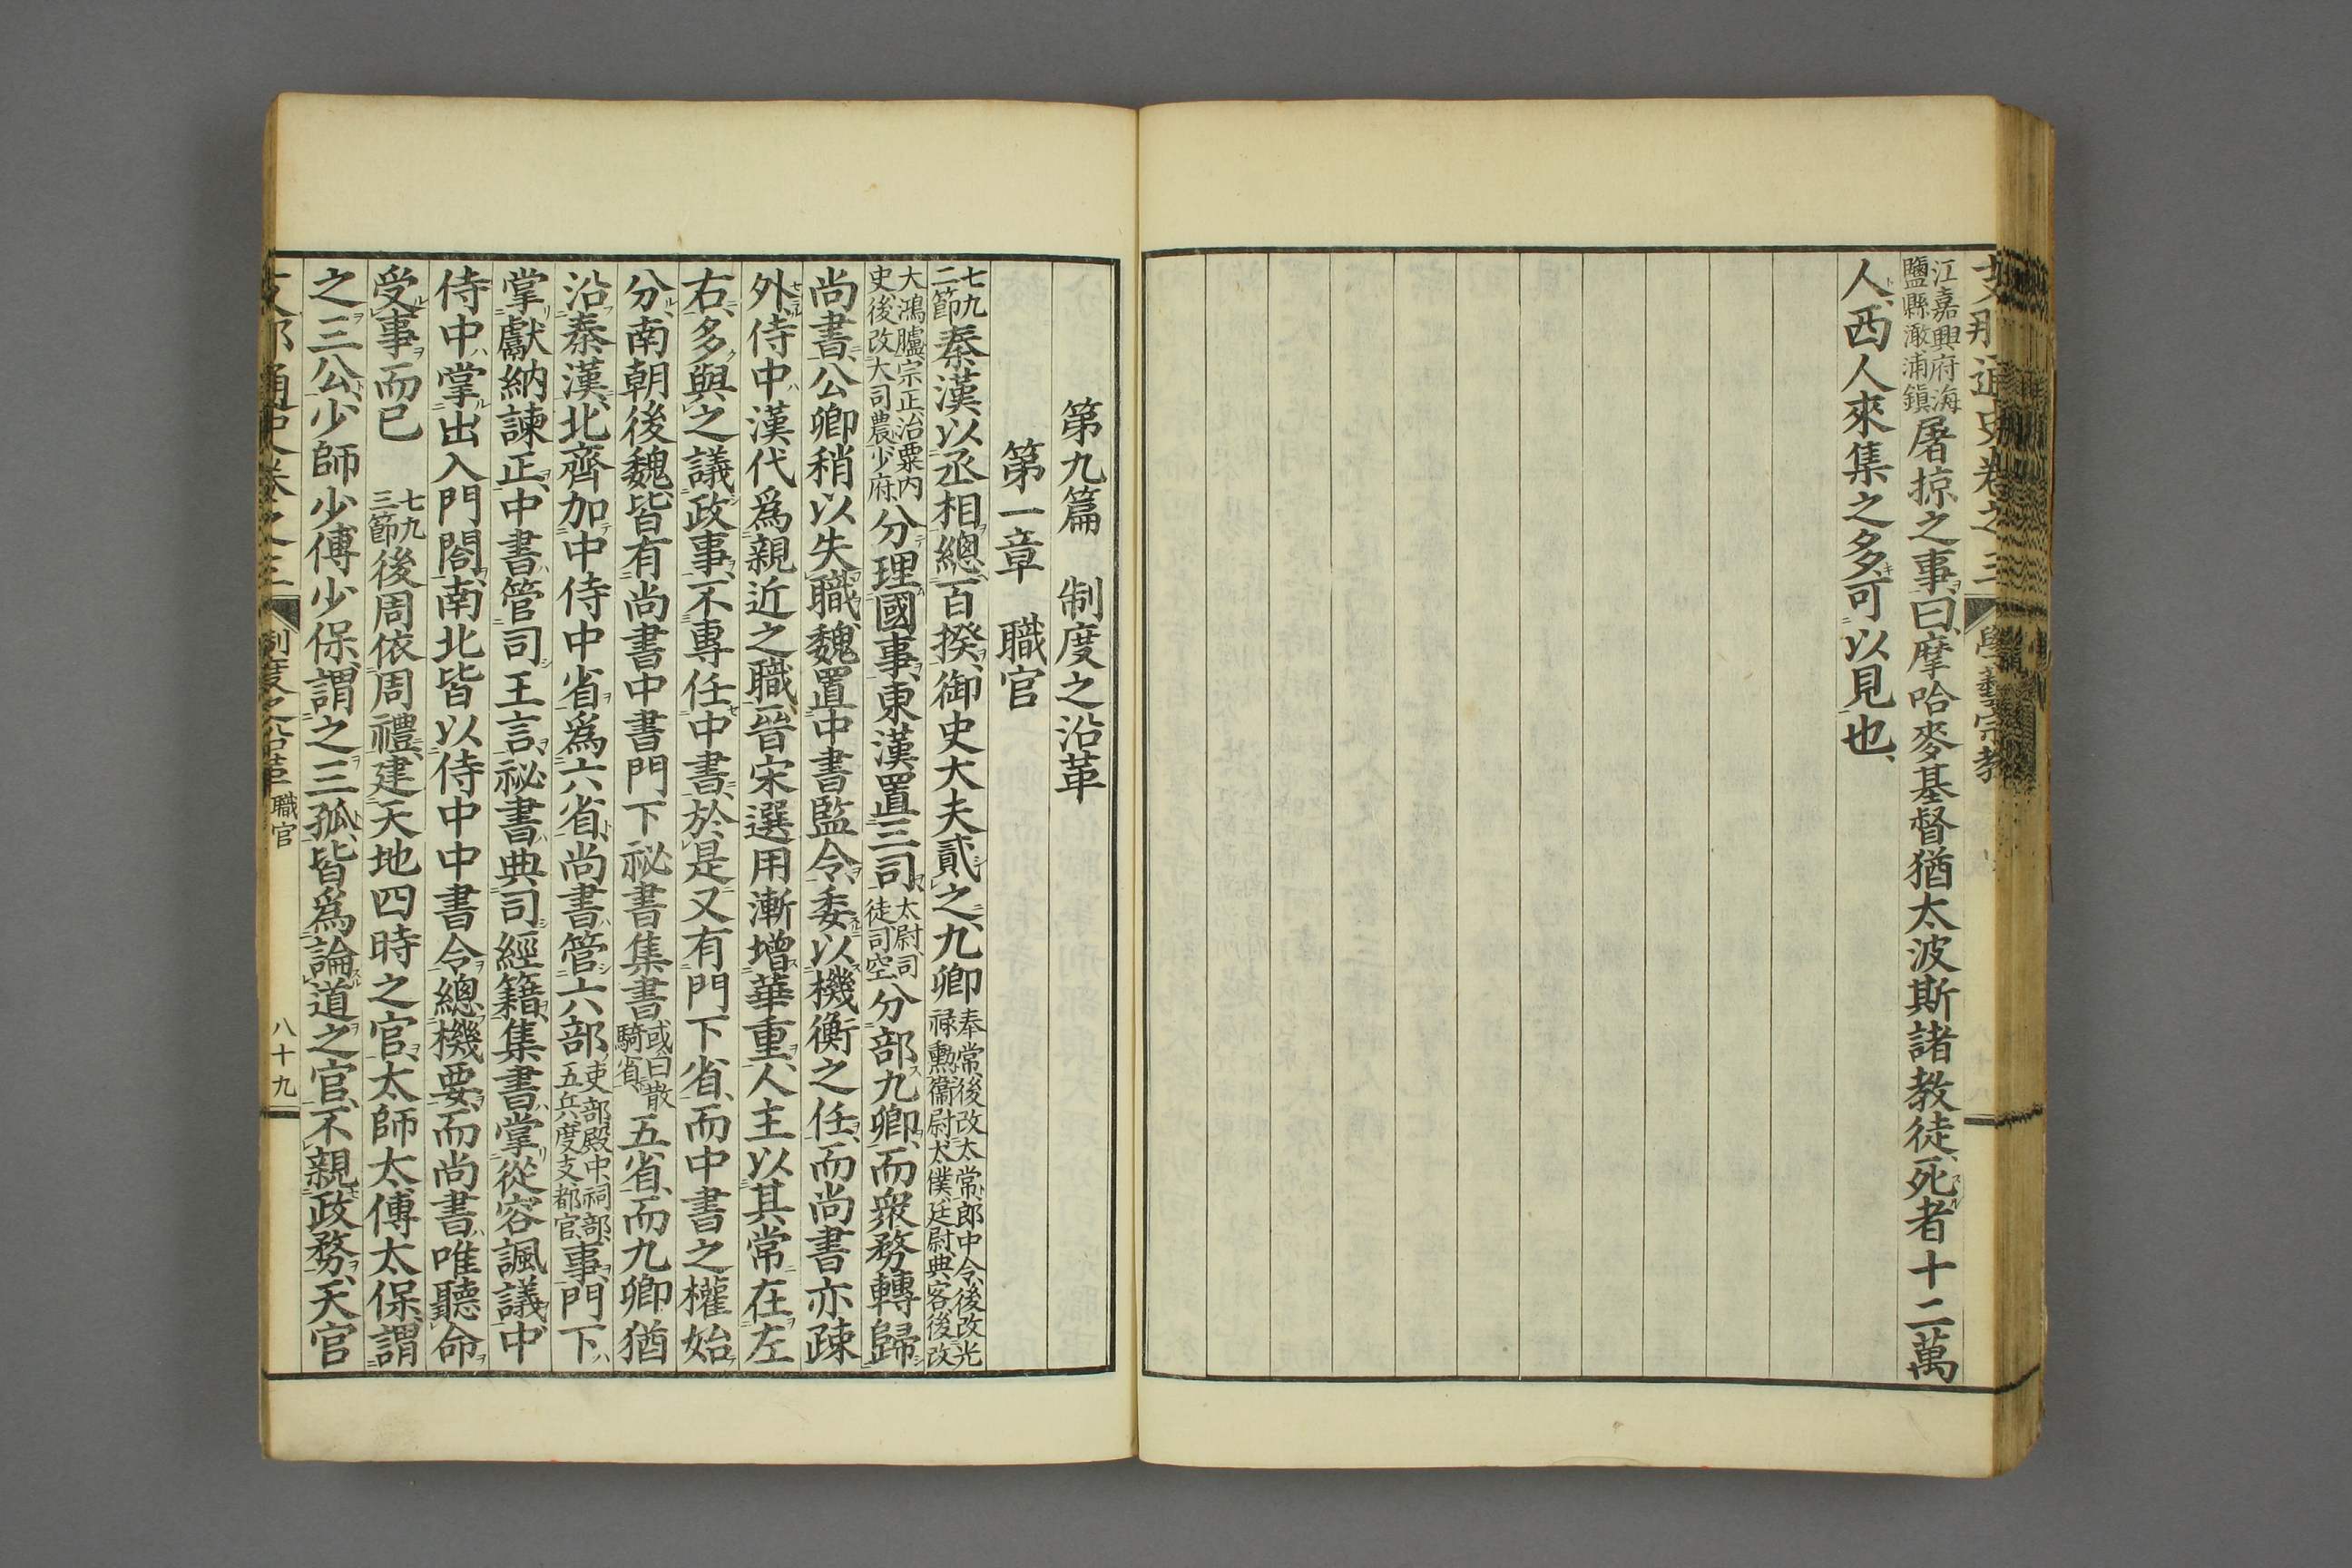 支那通史卷之三 學藝宗教
江嘉興府海鹽縣澉浦鎮屠掠之事曰摩哈麥基督猶太波斯諸教徒死者十二萬
人西人來集之多可以見也
第九篇 制度之沿革
第一章 職官
七九二節秦漢以丞相總百揆御史大夫貳之九卿奉常後改太常郎中令後改光祿勳衞尉太僕廷尉典客後改
大鴻臚宗正治粟内史後改大司農少府分理國事東漢置三司太尉司徒司空分部九卿而衆務轉歸
尚書公卿稍以失職魏置中書監令委以機衡之任而尚書亦疎
外侍中漢代爲親近之職晉宋選用漸增華重人主以其常在左
右多與之議政事不專任中書於是又有門下省而中書之權始
分南朝後魏皆有尚書中書門下祕書集書或曰散騎省五省而九卿猶
沿秦漢北齊加中侍中省爲六省尚書管六部吏部殿中祠部五兵度支都官事門下
掌獻納諫正中書管司王言祕書典司經籍集書掌從容諷議中
侍中掌出入門閤南北皆以侍中中書令總機要而尚書唯聽命
受事而已 七九三節後周依周禮建天地四時之官太師太傅太保謂
之三公少師少傅少保謂之三孤皆爲論道之官不親政務天官
支那通史卷之三 制度之沿革 職官 八十九